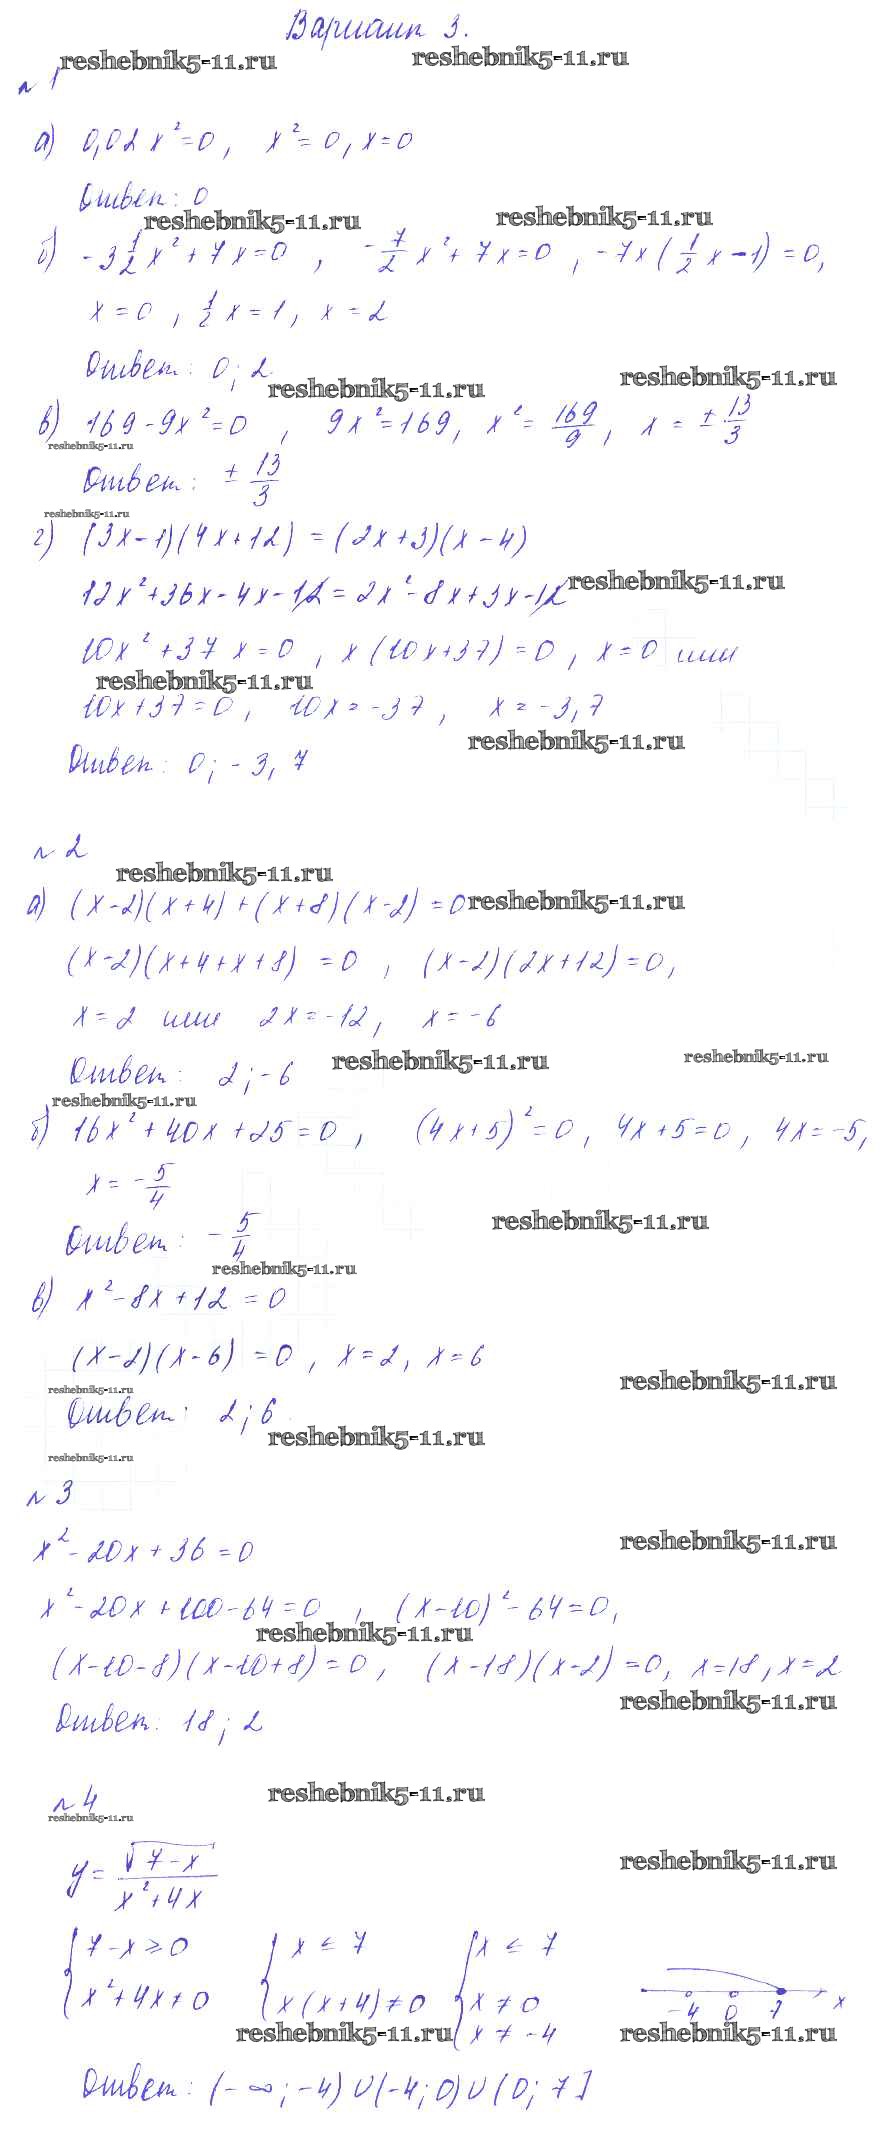 Вариант 3.
reshebnik5-11.ru reshebnik5-11.ru
№ 1
а) 0,02x²=0, x²=0, x=0
Ответ: 0
reshebnik5-11.ru reshebnik5-11.ru
б) -3 1/2 x² + 7x=0, -7/2 x² + 7x=0, -7x(1/2 x - 1) = 0,
x=0, 1/2 x=1, x=2
Ответ: 0; 2
reshebnik5-11.ru reshebnik5-11.ru
в) 169-9x²=0, 9x²=169, x²= 169/9, x = ± 13/3
reshebnik5-11.ru
Ответ: ± 13/3
reshebnik5-11.ru
г) (3x-1)(4x+12) = (2x+3)(x-4)
12x²+36x-4x-12=2x²-8x+3x-12 reshebnik5-11.ru
10x²+37x=0, x(10x+37)=0, x=0 или
reshebnik5-11.ru
10x+37=0, 10x=-37, x=-3,7
reshebnik5-11.ru
Ответ: 0; -3,7
№ 2
reshebnik5-11.ru
а) (x-2)(x+4)+(x+8)(x-2)=0 reshebnik5-11.ru
(x-2)(x+4+x+8) =0, (x-2)(2x+12)=0,
x=2 или 2x=-12, x=-6
Ответ: 2; -6 reshebnik5-11.ru reshebnik5-11.ru
reshebnik5-11.ru
б) 16x²+40x+25=0, (4x+5)²=0, 4x+5=0, 4x=-5,
x= -5/4
reshebnik5-11.ru
Ответ: -5/4
reshebnik5-11.ru
в) x²-8x+12=0
(x-2)(x-6)=0, x=2, x=6
reshebnik5-11.ru
reshebnik5-11.ru
Ответ: 2; 6
reshebnik5-11.ru
reshebnik5-11.ru
№ 3
reshebnik5-11.ru
x²-20x+36=0
x²-20x+100-64=0, (x-10)²-64=0,
reshebnik5-11.ru
(x-10-8)(x-10+8)=0, (x-18)(x-2)=0, x=18, x=2
reshebnik5-11.ru
Ответ: 18; 2
№ 4
reshebnik5-11.ru
reshebnik5-11.ru
reshebnik5-11.ru
y= √(7-x) / (x²+4x)
{ 7-x≥0 { x ≤ 7 { x ≤ 7
x²+4x≠0 x(x+4)≠0 x≠0
x≠-4
-4 0 7 x
reshebnik5-11.ru reshebnik5-11.ru
Ответ: (-∞; -4)∪(-4; 0)∪(0; 7]